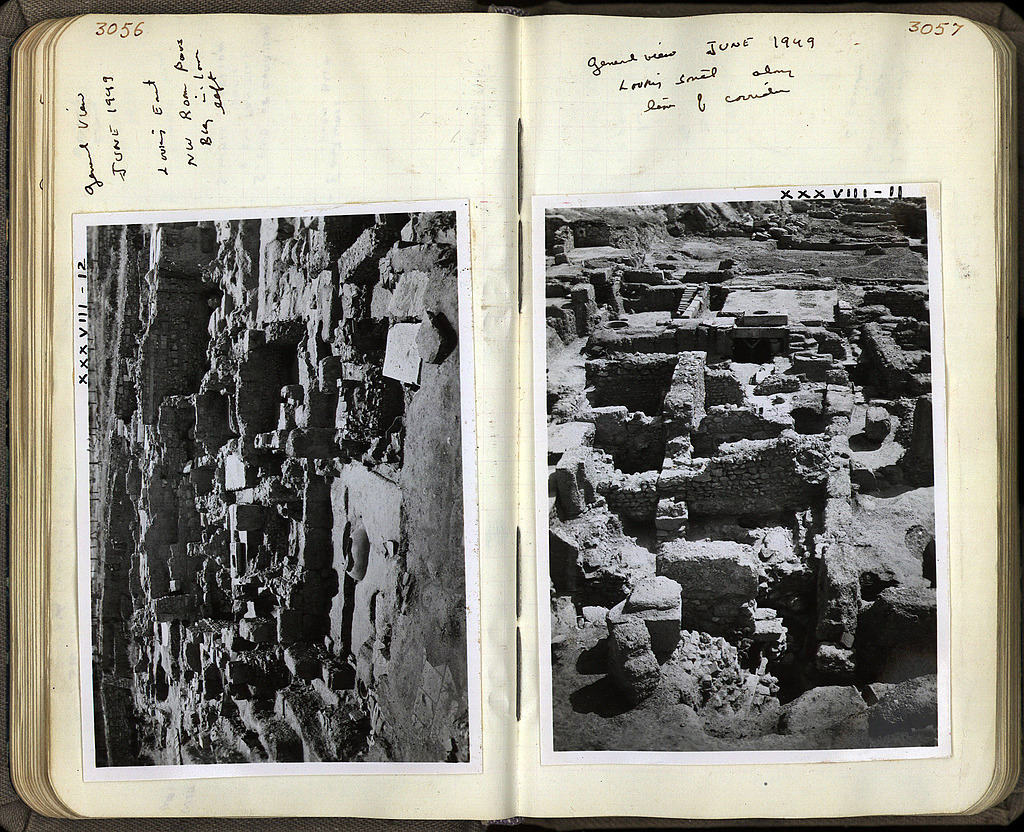 3056
General View
JUNE 1949
Looking East
NW Room Pave
Bldg in low
left
XXXVIII-12
3057
General view JUNE 1949
Looking South along
line of corridor
XXXVIII-11